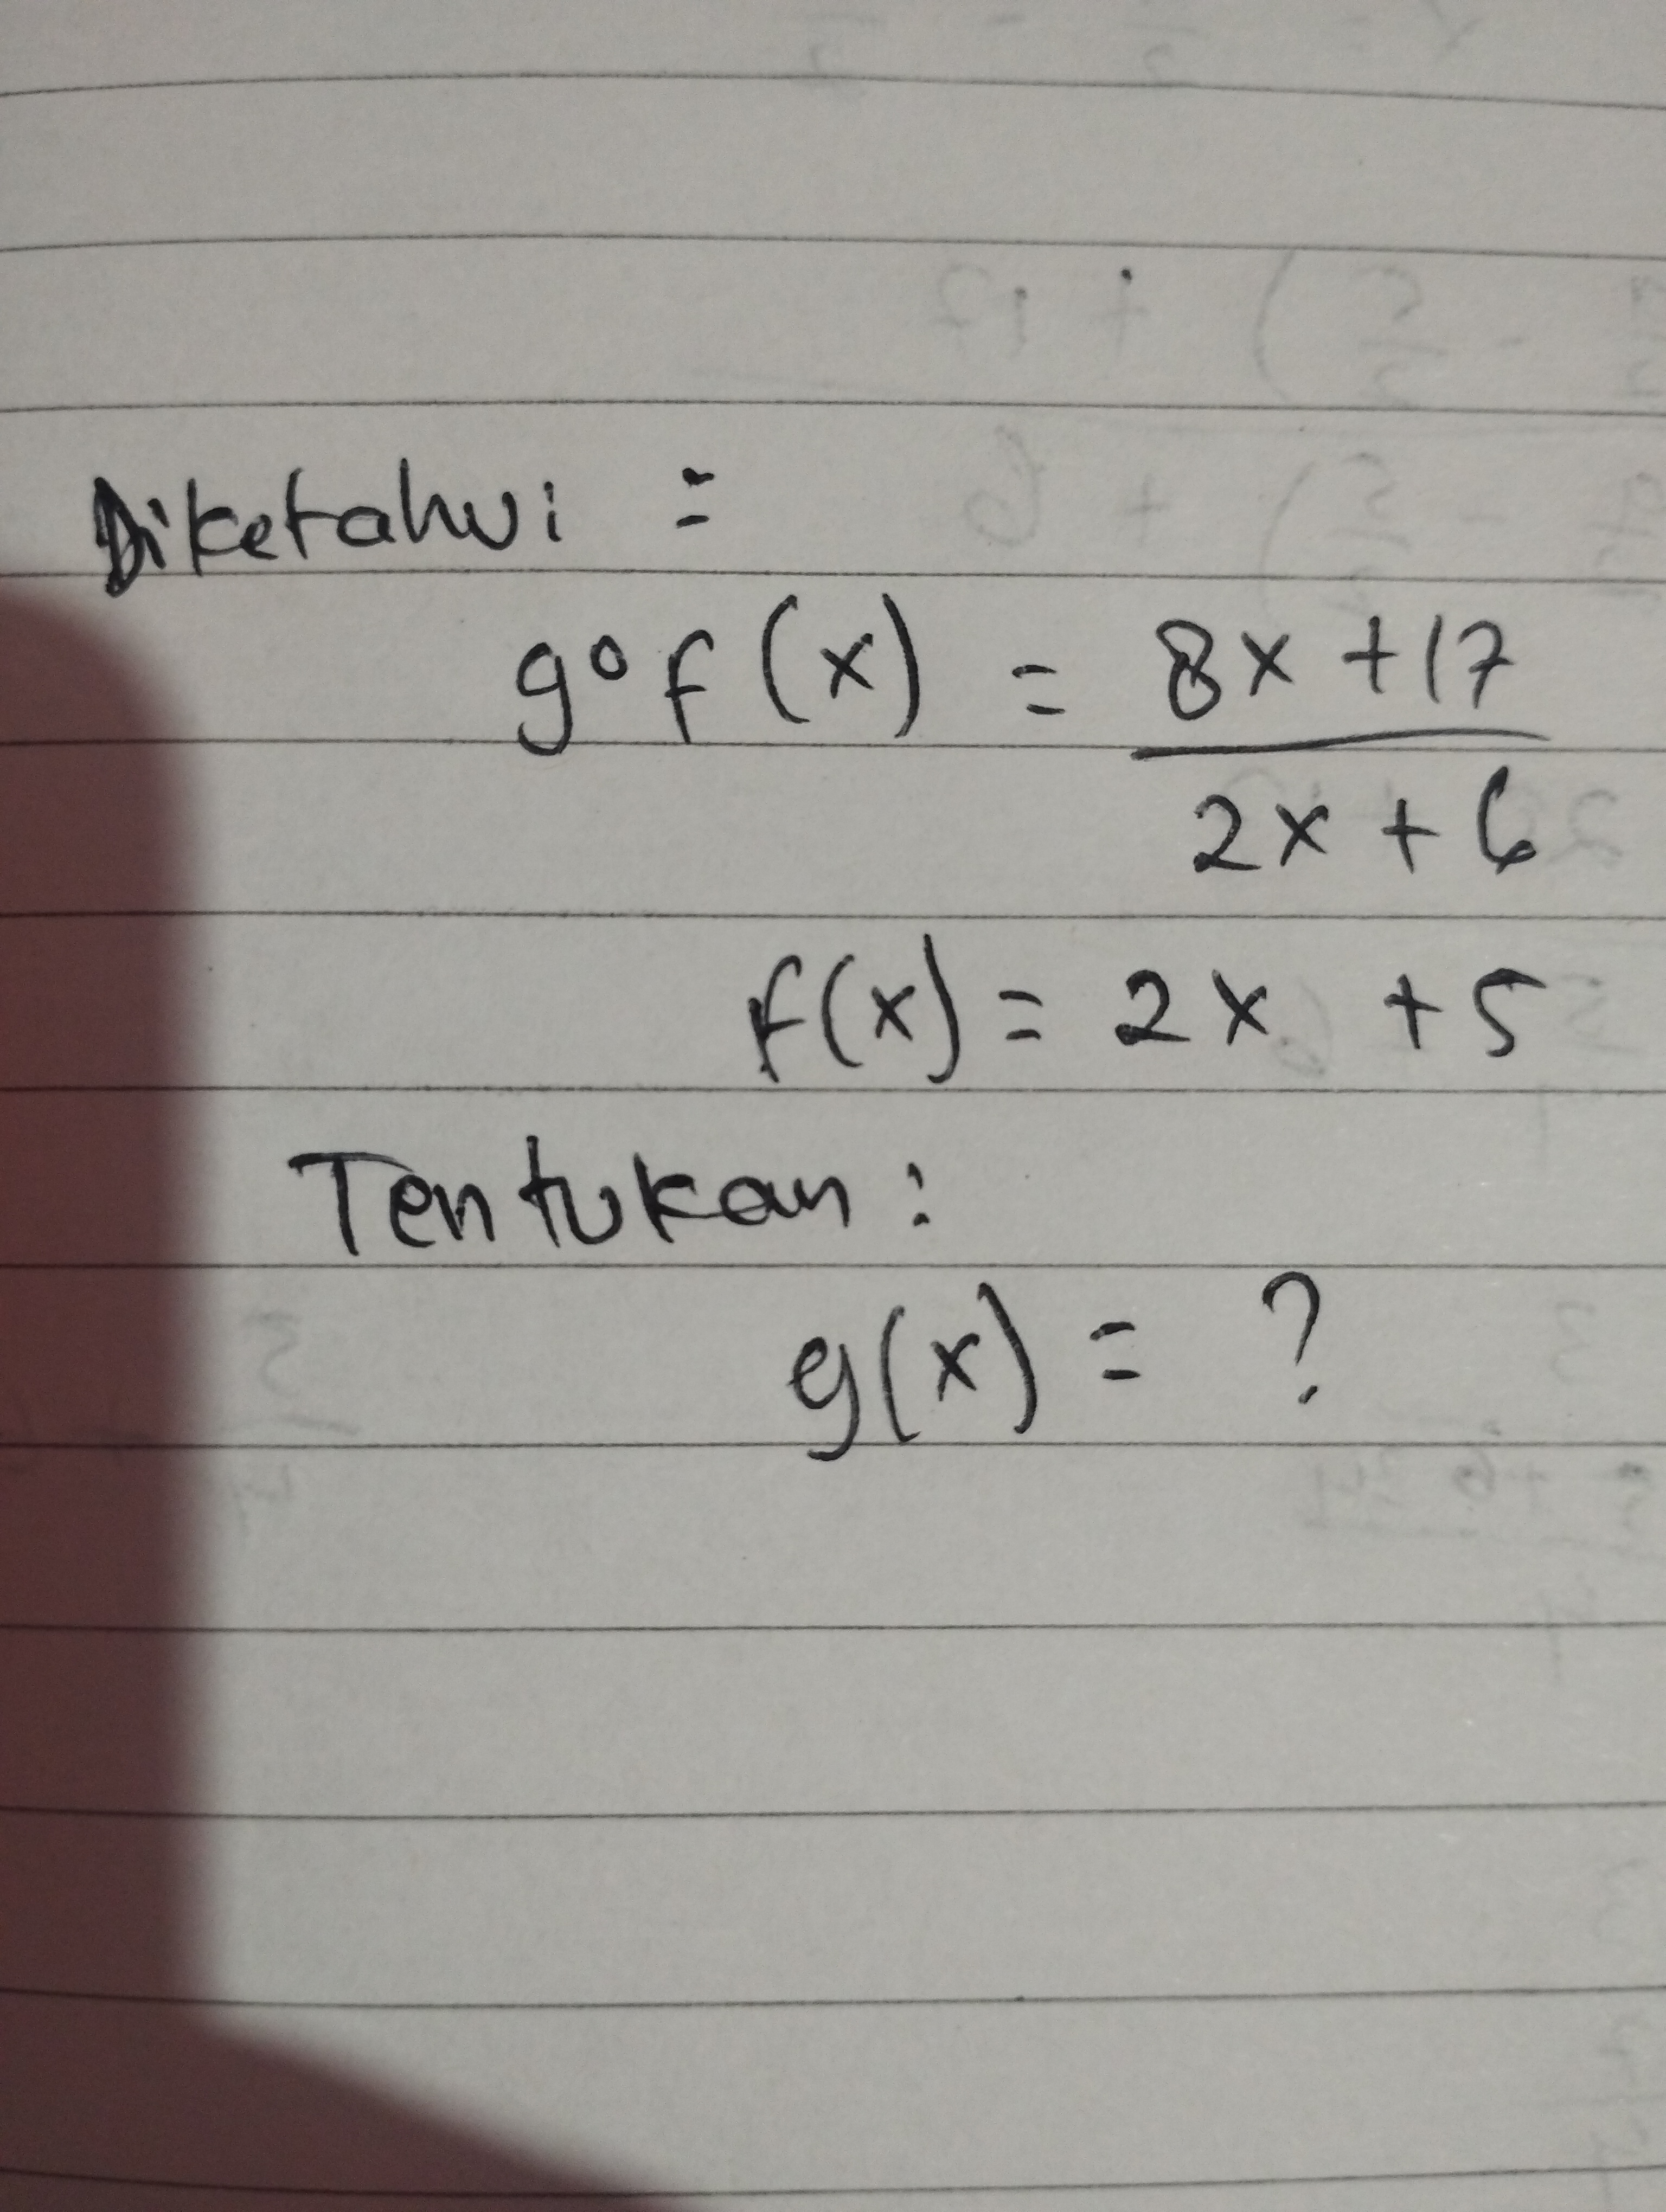 Diketahui :
g∘f (x) = 8x + 17
2x + 6
f(x) = 2x + 5
Tentukan :
g(x) = ?